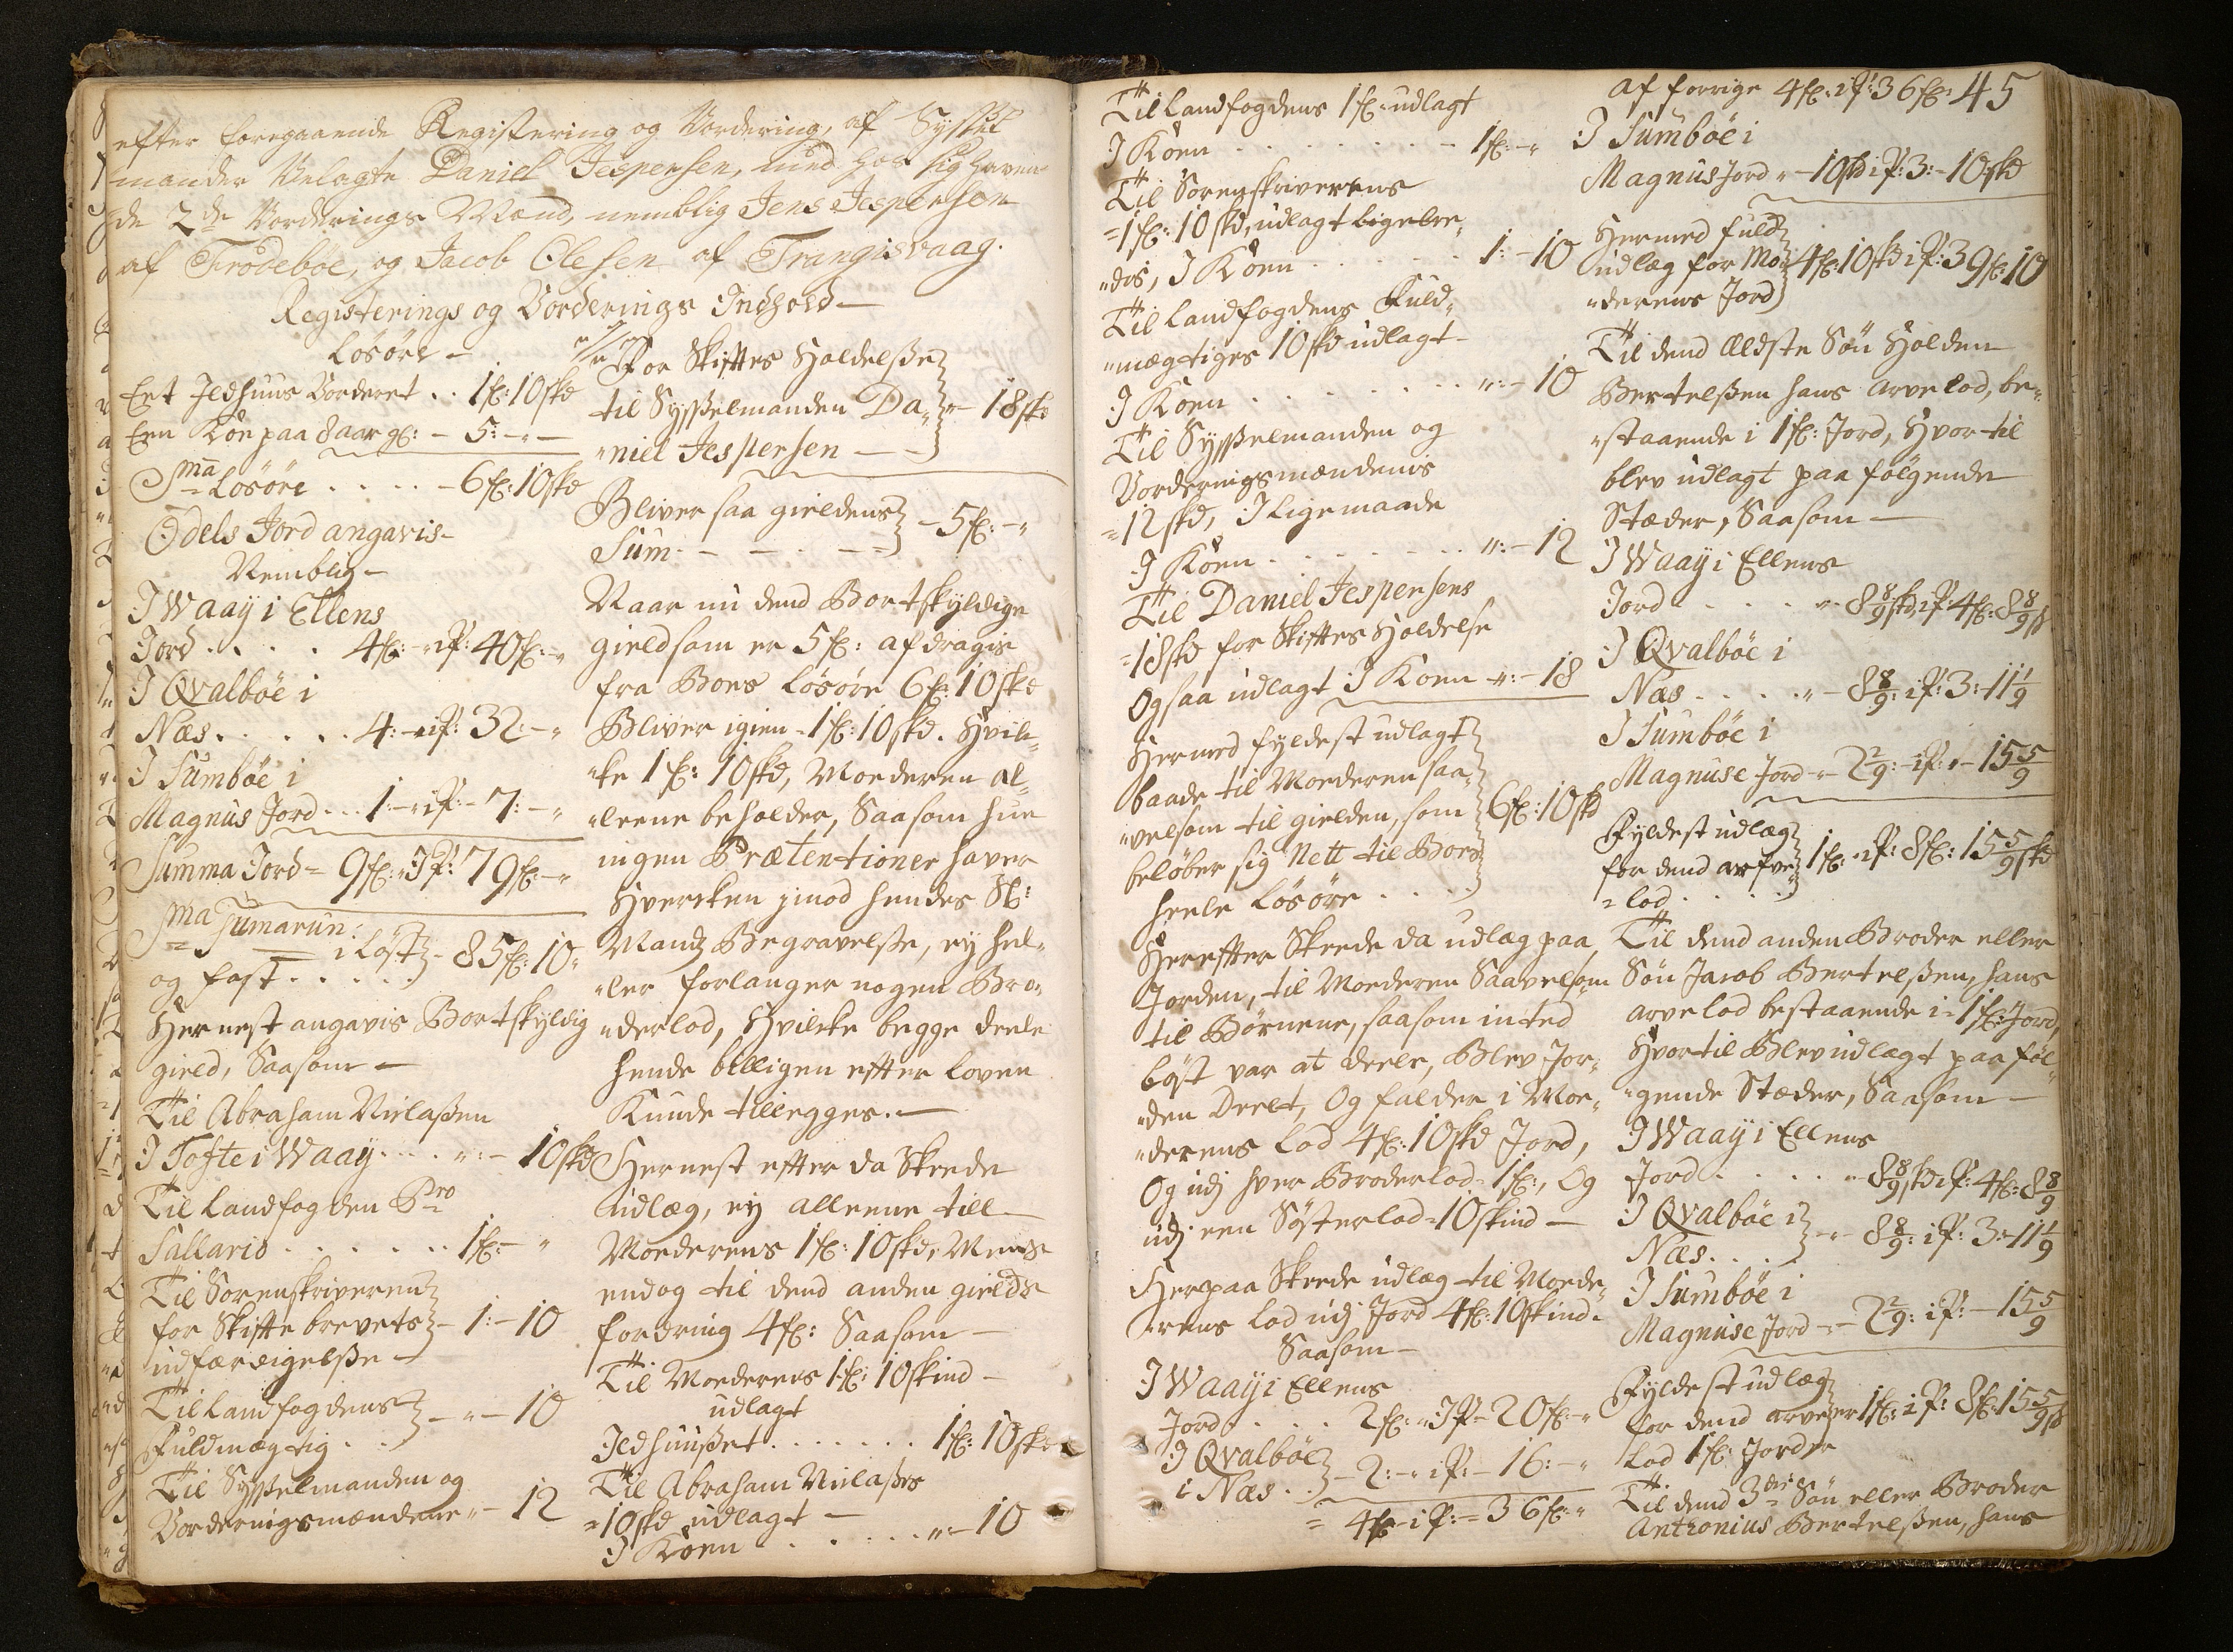 efter foregaaende Registering og Vordering, af Syssel
mander Velagte Daniel Jespersen, med hos sig haven
de 2de Vorderings Mænd, nemblig Jens Jespersen
af Frodeböe, og Jacob Olesen af Trangisvaag.
Registerings og Vorderings Indhold
Lösöre
Eet Ildhuus Vorderet .. 1f: 10skd
Een Köe paa 8 aar g: - 5: - "
Sma Lösöre . . . . - 6f: 10skd
Odels Jord angavis
Nemblig
I Waay i Ellens
Jord . . . . 4f: - " ip: 40f: "
I Qvalböe i
Næs . . . . . 4: - " ip: 32: - "
I Sumböe i
Magnus Jord ... 1: - " ip: - 7: - "
Summa Jord = 9f: " Ip: 79f: - "
Sma Sumarum:
i Löst
og fast . . . . . 85f: 10 "
Hernest angavis Bortskyldig
gield, Saasom
Til Abraham Niclaßen
I Tofte i Waay . . . . " : - 10skd
Til Landfogden Pro
Sallario . . . . . . 1f: - "
Til Sorenskriveren
for Skiftebrevets - 1: - 10
udfærdigelße
Til Landfogdens
Fuldmægtig . . - " - 10
Til Sysselmanden og
Vorderingsmændene " - 12
For Skiftes Holdelße
til Sysselmanden Da " - 18skd
"niel Jespersen
Bliver saa gieldens
Sum - - - . - - 5f: - "
Naar nu dend Bortskyldige
gield som er 5f: afdragis
fra Boes Lösöre 6f: 10skd
Bliver igien - 1f: 10skd. Hvil
"ke 1f: 10skd, Moederen al
"leene beholder, Saasom hun
ingen Prætentioner haver
Hvercken imod hendes Sl:
Mands Begravelße, ey hel
"ler forlanger nogen Bro
"derlod, Hvilcke begge deele
hende billigen efter Loven
Kunde tillegges.
Hernest efter da Skeede
udlæg, ey alleene till
Moederens 1f: 10skd, Mens
endog til dend anden gields
fordring 4f: Saasom
Til Moederens 1f: 10skind
udlagt
Ildhuußet . . . . . . . 1f: 10skd
Til Abraham Niclaßes
=10skd udlagt
I Koen . . . . . . " - 10
Til Landfogdens 1f: udlagt
I Koen . . . . . . . . - 1f: - "
Til Sorenskriverens
=1f: 10skd, udlagt ligelee
"des, I Koen . . . . . . 1: - 10
Til Landfogdens Fuld
"mægtiges 10skd udlagt
I Koen . . . . . . . . . " : - 10
Til Sysselmanden og
Vorderingsmændenis
=12skd, I Ligemaade
I Koen . . . . . . . . " : - 12
Til Daniel Jespersens
=18skd for Skiftes Holdelse
Ogsaa udlagt I Koen - " : - 18
Hermed fyldest udlagt
baade til Moederen saa
"velsom til gielden, som 6f: 10skd
belöber sig Nett til Boes
heele Lösöre . . . . .
Herefter Skeede da udlæg paa
Jorden, til Moederen Saavelsom
til Börnene, saasom inted
löst var at deele, Blev Jor
"den Deelt, Og falder i Moe
"derens Lod 4f: 10skd Jord,
Og udj hver Broderlod = 1f:, Og
udj een Sösterlod = 10skind
Herpaa Skeede udlæg til Moede
"rens Lod udj Jord 4f: 10skind.
Saasom
I Waay i Ellens
Jord . . . . . 2f: " Ip - 20f: - "
I Qvalböe
i Næs . . - 2: - " ip: - 16: - "
= 4f: - ip: = 36f: "
af forrige 4f: ip: 36f: 45
I Sumböe i
Magnus Jord " - 10skd ip: 3: - 10skd
Hermed fuld
udlæg for Mo 4f: 10skd ip: 39f: 10
"derens Jord
Til dend Ældste Sön Holden
Bertelßen hans arvelod, be
"staaende i 1f: Jord, Hvortil
blev udlagt paa fölgende
Stæder, Saasom
I Waay i Ellens
Jord . . . . " - 8 8/9 skd, ip: 4f: 8 8/9 s
I Qvalböe i
Næs . . . . . " - 8 8/9: ip: 3: - 11 1/9
I Sumböe i
Magnuse Jord - " - 2 2/9: - ip: " - 15 5/9
Fyldest udlæg
for dend arfve 1f: " ip: 8f: 15 5/9 skd
=lod . . . . .
Til dend anden Broder eller
Sön Jacob Bertelßen, hans
arvelod bestaaende i = 1f: Jord,
Hvortil Blev udlagt paa föl
"gende Stæder, Saasom
I Waay i Ellens
Jord . . . . . " - 8 8/9 skd ip: 4f: 8 8/9
I Qvalböe i
Næs . . . . - " - 8 8/9: ip: 3: - 11 1/9
I Sumböe i
Magnuse Jord - " - 2 2/9: ip: - 15 5/9
Fyldest udlæg
for dend arve er 1f: ip: 8f: 15 5/9 s
Lod 1f: Jord
Til dend 3die Sön eller Broder
Anthonius Bertelßen, hans